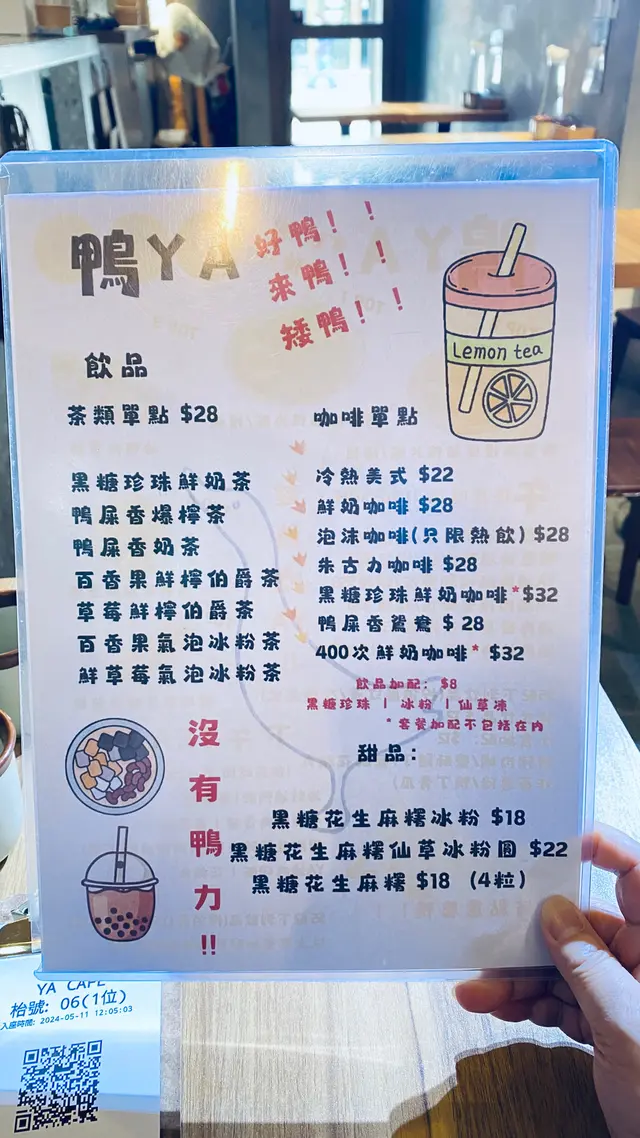 鴨YA
好鴨！！
來鴨！！
矮鴨！！
Lemon tea
飲品
茶類單點 $28
黑糖珍珠鮮奶茶
鴨屎香爆檸茶
鴨屎香奶茶
百香果鮮檸伯爵茶
草莓鮮檸伯爵茶
百香果氣泡冰粉茶
鮮草莓氣泡冰粉茶
咖啡單點
冷熱美式 $22
鮮奶咖啡 $28
泡沫咖啡(只限熱飲) $28
朱古力咖啡 $28
黑糖珍珠鮮奶咖啡*$32
鴨屎香鴛鴦 $ 28
400次鮮奶咖啡* $32
飲品加配: $8
黑糖珍珠 | 冰粉 | 仙草凍
*套餐加配不包括在內
甜品:
黑糖花生麻糬冰粉 $18
黑糖花生麻糬仙草冰粉圓 $22
黑糖花生麻糬 $18 (4粒)
沒有鴨力!!
YA CAFE
枱號: 06(1位)
入座時間: 2024-05-11 12:05:03